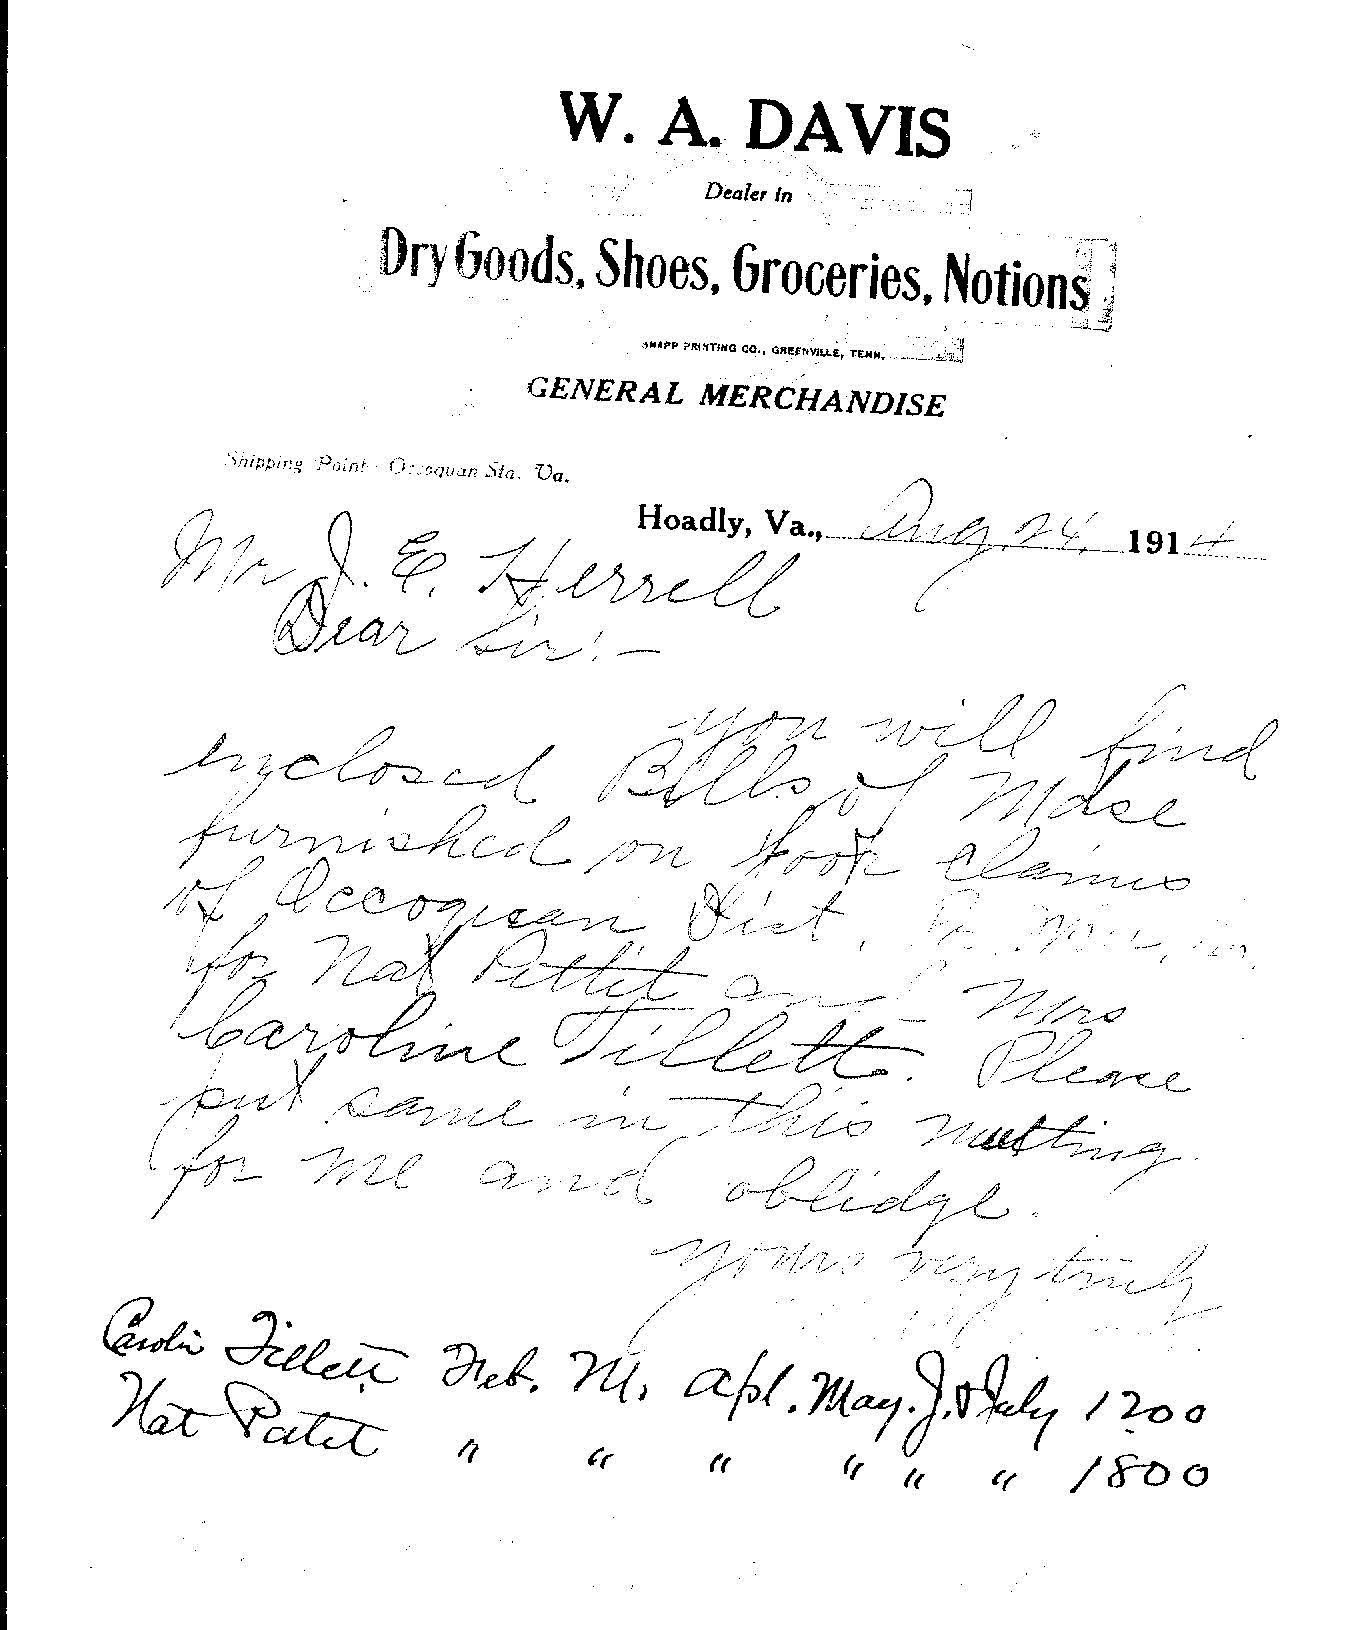 W. A. DAVIS
Dealer in
Dry Goods, Shoes, Groceries, Notions
SNAPP PRINTING CO., GREENVILLE, TENN.
GENERAL MERCHANDISE
Shipping Point Occoquan Sta. Va.
Hoadly, Va., Aug. 24, 1914
Mr J. E. Herrell
Dear Sir:-
you will find
enclosed Bills of Mdse
furnished on poor claims
of Occoquan Dist.
for Nat Pettit and Mrs
Caroline Tillett. Please
put same in this meeting
for me and oblidge.
yours very truly
Carolin Tillett Feb. M. Apl. May. J. & July 1200
Nat Patit " " " " " " 1800